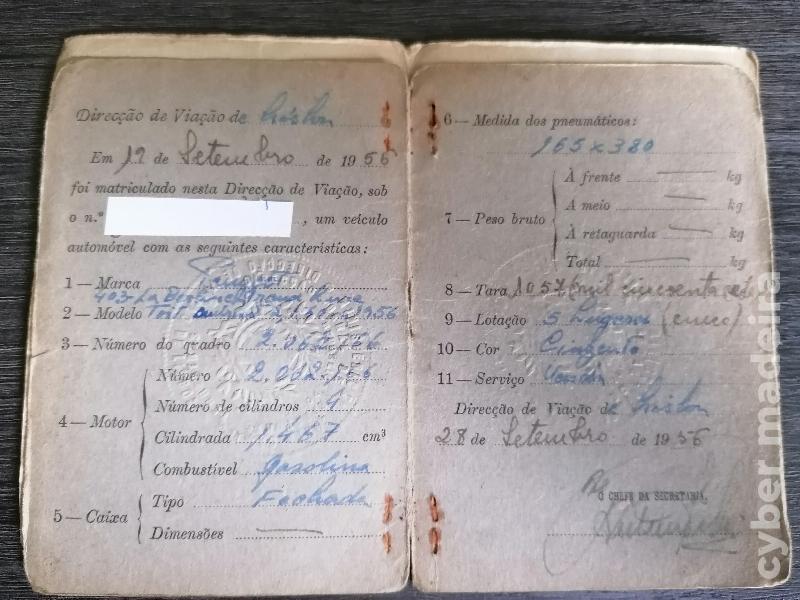 Direcção de Viação de Lisboa
Em 19 de Setembro de 1956
foi matriculado nesta Direcção de Viação, sob
o n.º , um veículo
automóvel com as seguintes características:
1 — Marca Peugeot
403
2 — Modelo 1956
3 — Número do quadro 2.062.766
4 — Motor
Número
Número de cilindros 4
Cilindrada 1.467 cm³
Combustível Gasolina
5 — Caixa
Tipo Fechada
Dimensões
6 — Medida dos pneumáticos:
165x380
7 — Peso bruto
À frente kg
A meio kg
À retaguarda kg
Total kg
8 — Tara 1057
9 — Lotação 5 Lugares (cinco)
10 — Cor Cinzento
11 — Serviço
Direcção de Viação de Lisboa
28 de Setembro de 1956
O CHEFE DA SECRETARIA,
cyber madeira